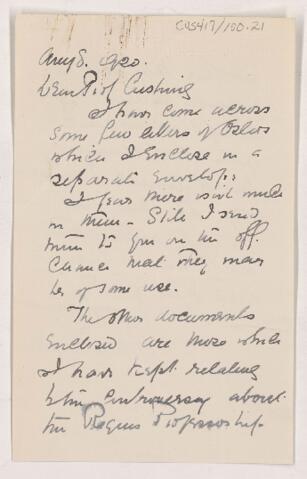 CUS417/100.21
Aug 8. 1920.
Dear Prof Cushing
I have come across
some few letters of Oslers
which I enclose in a
separate envelope
I fear there isnt much
in them - Still I send
them to you on the off.
Chance that they may
be of some use.
The other documents
enclosed are those which
I have kept relating
to the Controversy about
the Regius Professorship.